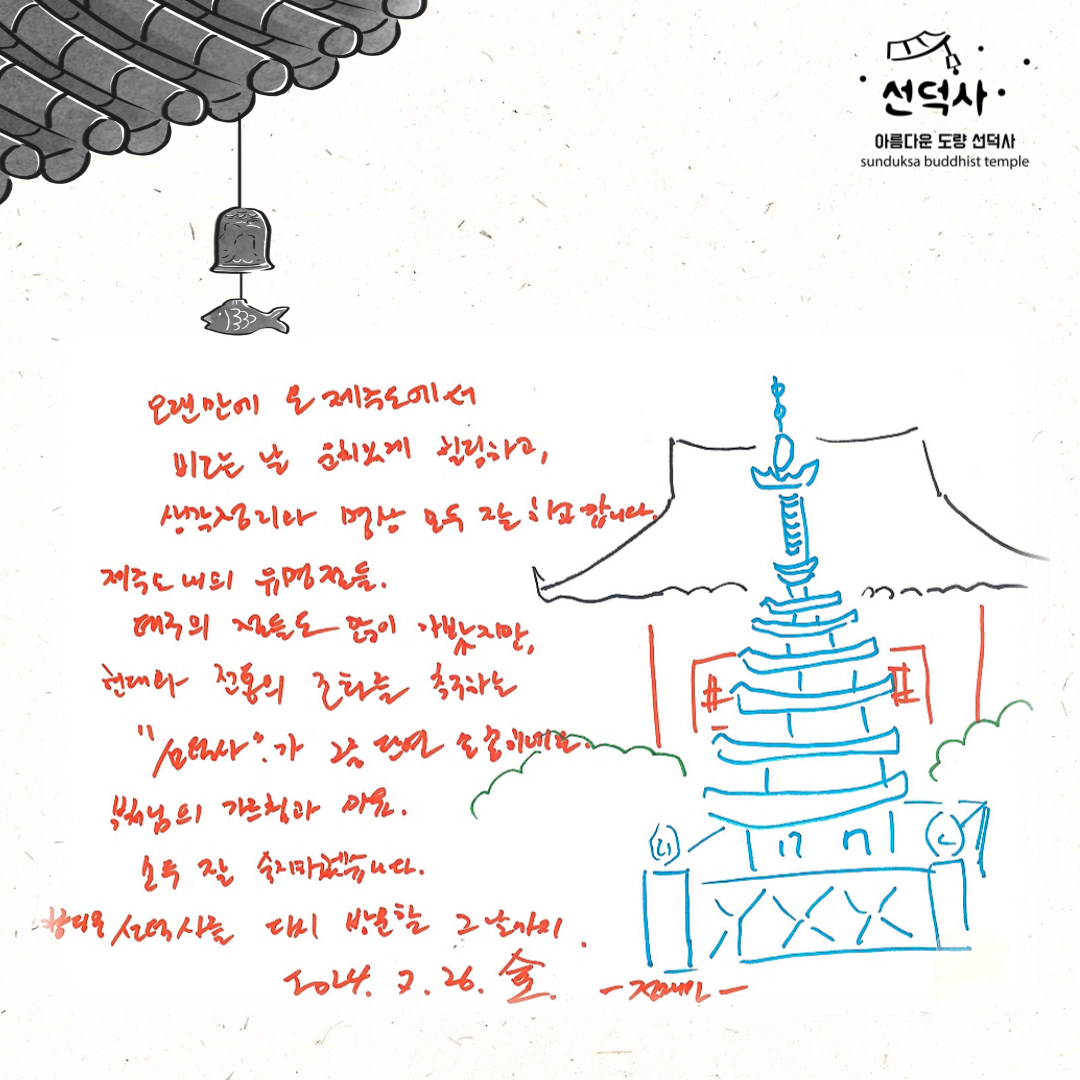 선덕사
아름다운 도량 선덕사
sunduksa buddhist temple
오랜만에 온 제주도에서
비오는 날 운치있게 힐링하고,
생각정리와 명상 모두 잘 하고 갑니다.
제주도 내의 유명 절들.
제주의 절들도 많이 가봤지만,
현대와 전통의 조화를 추구하는
"선덕사"가 그중 단연
부처님의 가르침과 마음.
모두 잘 숙지하겠습니다.
선덕사를 다시 방문할 그날까지.
2024. 7. 26. 金.